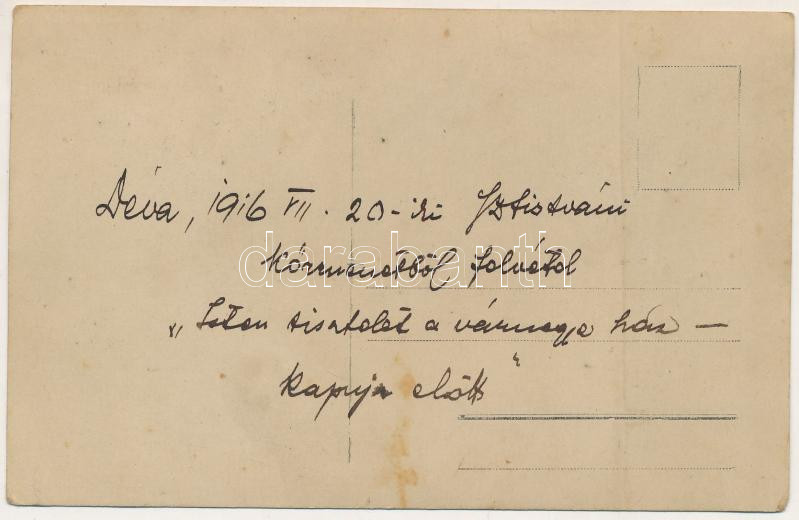 Déva, 1916 VII. 20-iki Sztistváni
körmenetből felvétel
"Isten tisztelet a vármegye ház —
kapuja előtt"
darabanth